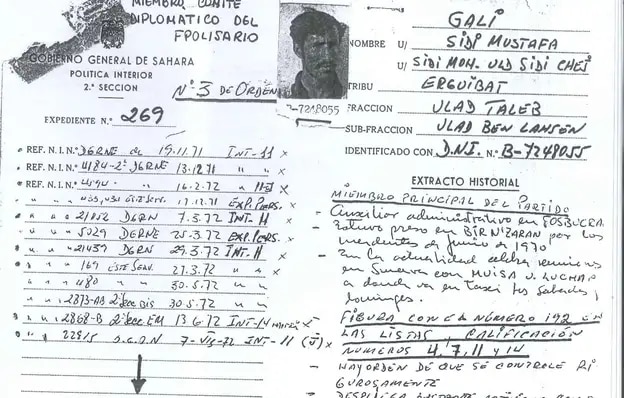 MIEMBRO COMITE
DIPLOMATICO DEL
FPOLISARIO
GOBIERNO GENERAL DE SAHARA
POLITICA INTERIOR
2.ª SECCION
Nº 3 DE ORDEN
EXPEDIENTE N.º 269
REF. N.I.N.º DGRNE de 19.11.71 INT-11 x
REF. N.I.N.º 4184-2ª DGRNE 13.12.71 " " x
REF. N.I.N.º 16.2.72 x
ESTE SERV. 17.12.71 EXP. PERS.
" " " 21052 DGRN 7.3.72 INT. H x
" " " 5029 DGRNE 25.3.72 EXP. PERS. x
" " " 21439 DGRN 29.3.72 INT. H x
" " " 169 ESTE SERV. 27.3.72 " " x
" " " 480 " 30.5.72 " "
" " " 2873-AB 2ª Sec Bis 30.5.72 " "
" " " 2868-B 2ª Sec EM 13 6.72 INT-14 x
" " " 22915 7-VII-72 INT-11 (I) x
B-7248055
GALI
NOMBRE U/ SIDI MUSTAFA
U/ SIDI MOH. ULD SIDI CHEJ
TRIBU ERGUIBAT
FRACCION ULAD TALEB
SUB-FRACCION ULAD BEN LAHSEN
IDENTIFICADO CON D.N.I. N.º B-7248055
EXTRACTO HISTORIAL
MIEMBRO PRINCIPAL DEL PARTIDO
- Auxiliar administrativo en FOSBUCRA
- Estuvo preso en BIRNIZARAN por los
incidentes de junio de 1970
- En la actualidad celebra reuniones
en Smara con MUISA U. LUCHAP
a donde va en Taxi los sabados y
domingos.
FIGURA CON EL NÚMERO 192 EN
LAS LISTAS, CALIFICACIÓN
NÚMEROS 4, 7, 11 y 14
- HAY ORDEN DE QUE SE CONTROLE RI
GUROSAMENTE